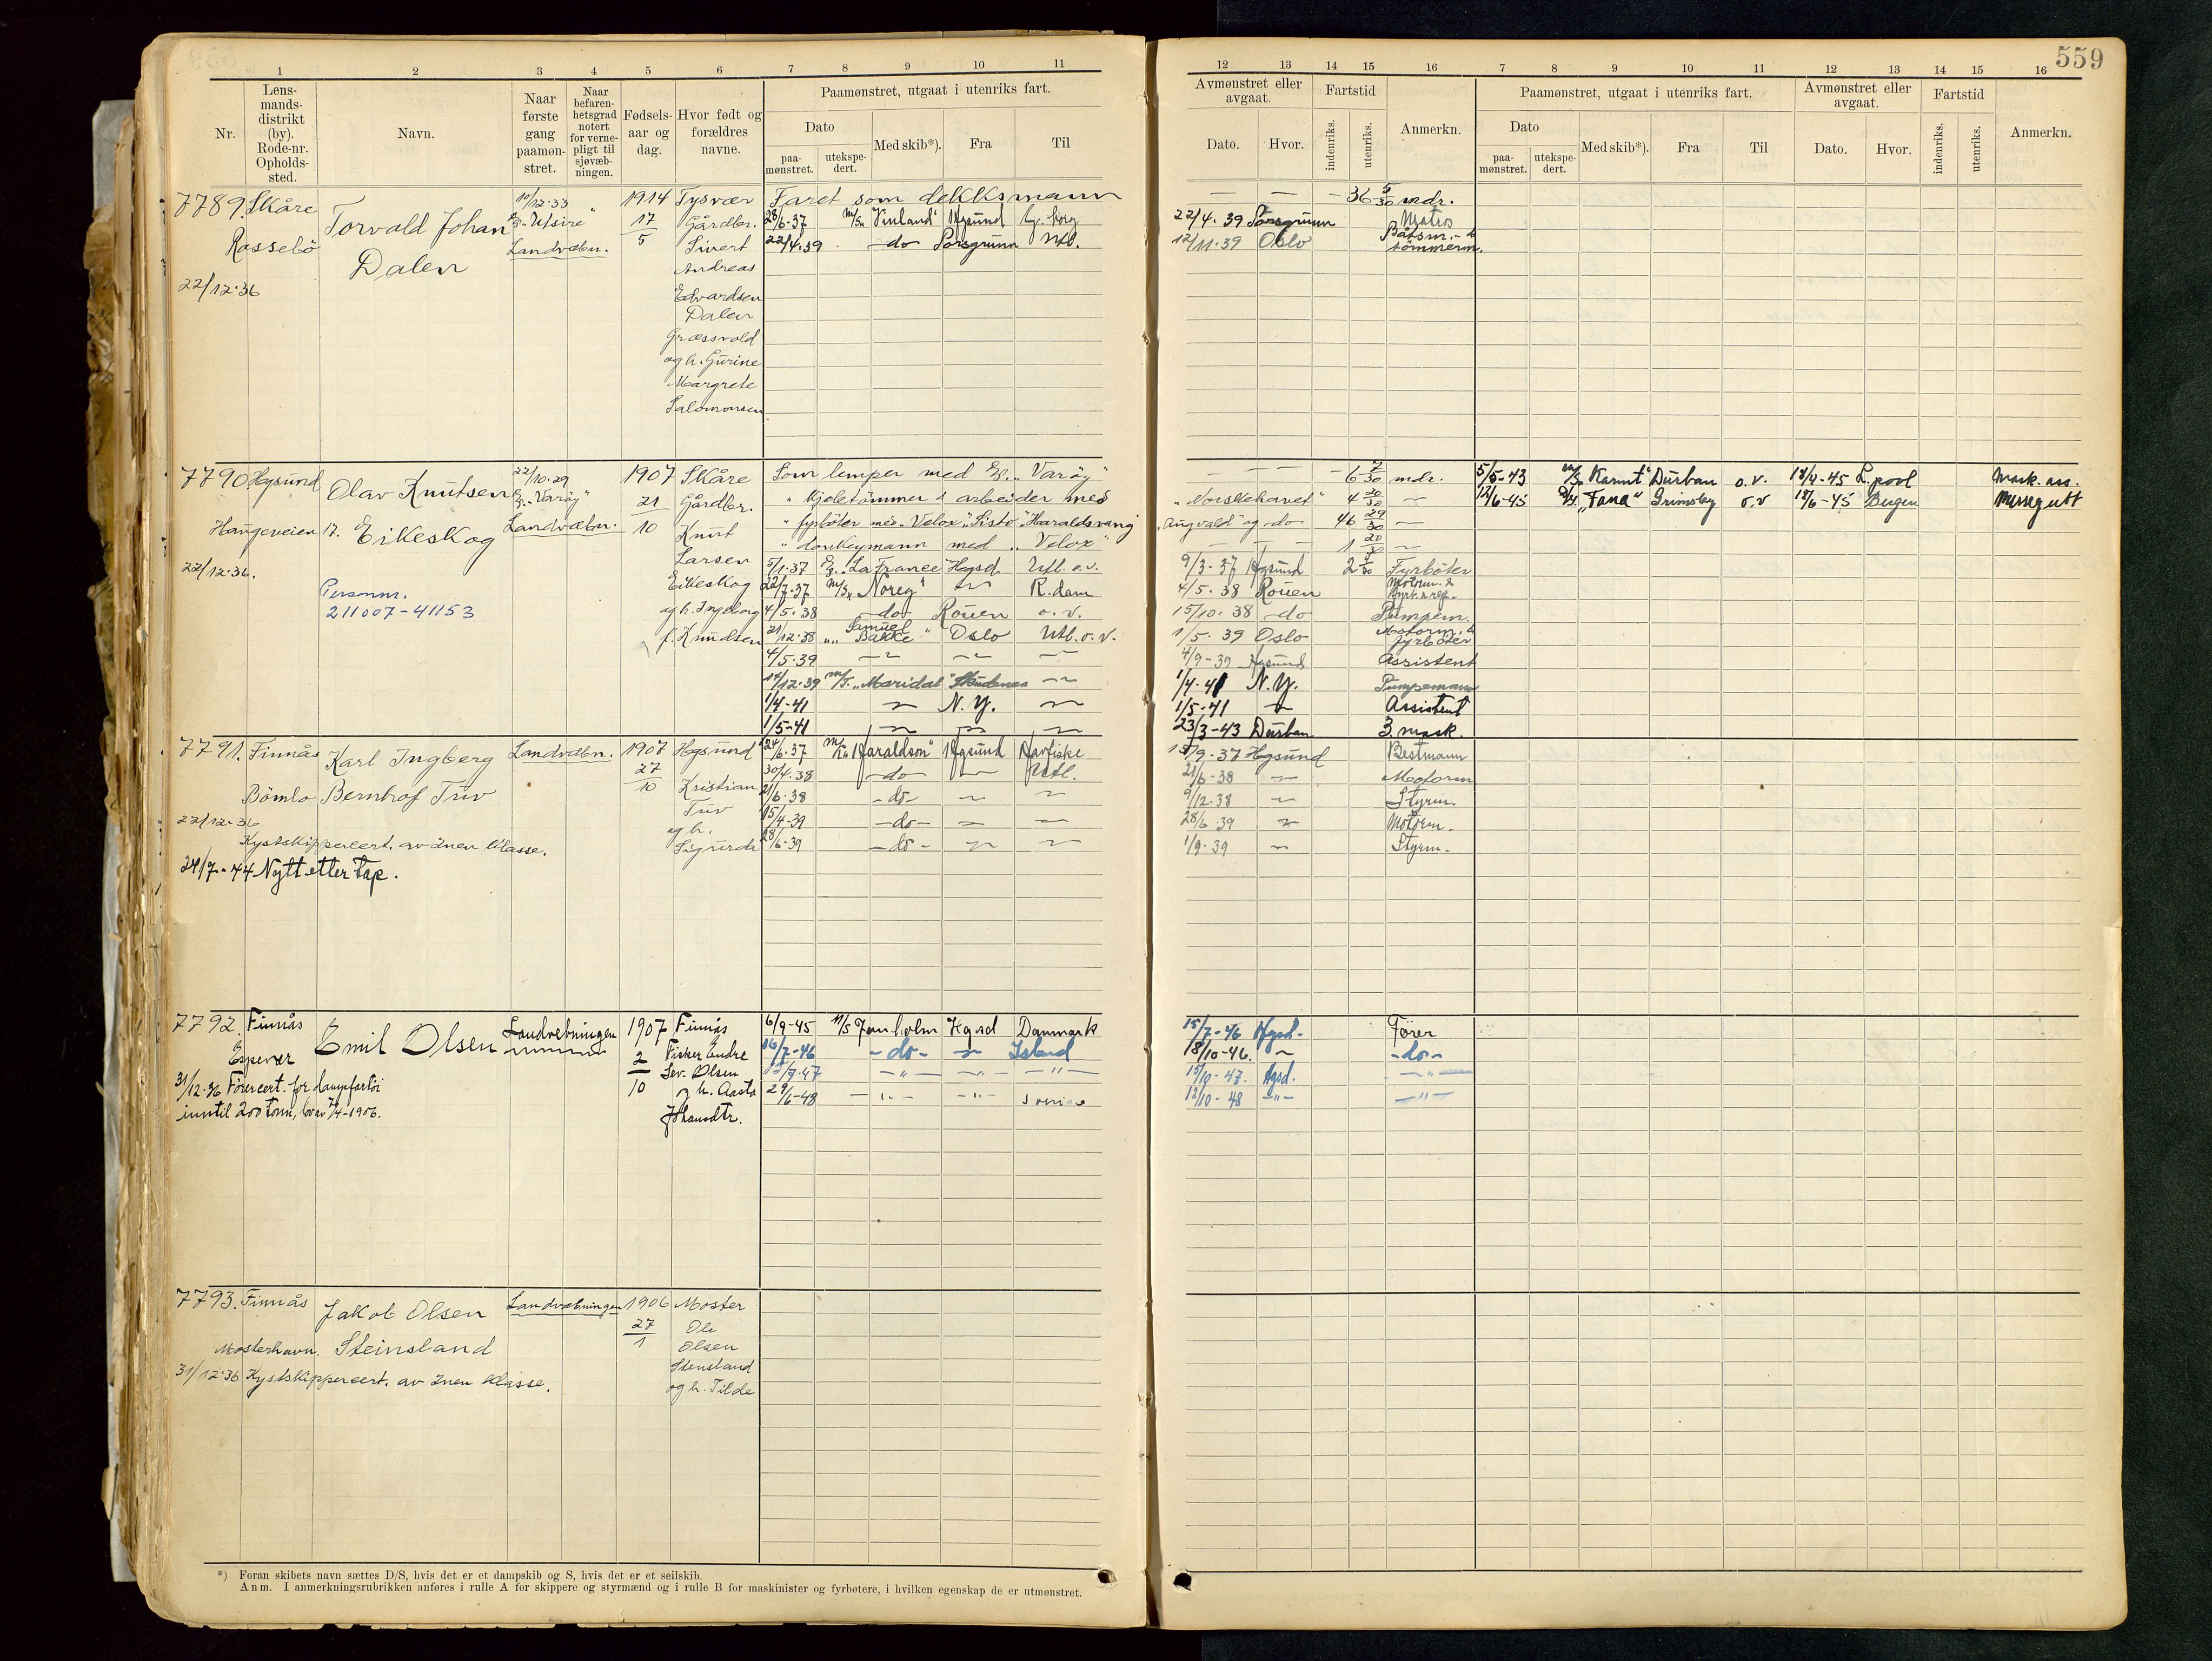 559
1 2 3 4 5 6 7 8 9 10 11
12 13 14 15 16 7 8 9 10 11 12 13 14 15 16
Nr.
Lens-
mands-
distrikt
(by).
Rode-nr.
Opholds-
sted.
Navn.
Naar
første
gang
paamøn-
stret.
Naar
befaren-
hetsgrad
notert
for verne-
pligt til
sjøvæb-
ningen.
Fødsels-
aar og
dag.
Hvor født og
forældres
navne.
Paamønstret, utgaat i utenriks fart.
Dato
paa-
mønstret.
utekspe-
dert.
Med skib*).
Fra
Til
Avmønstret eller
avgaat.
Dato.
Hvor.
Fartstid
indenriks.
utenriks.
Anmerkn.
Paamønstret, utgaat i utenriks fart.
Dato
paa-
mønstret.
utekspe-
dert.
Med skib*).
Fra
Til
Avmønstret eller
avgaat.
Dato.
Hvor.
Fartstid
indenriks.
utenriks.
Anmerkn.
7789. Skåre
Rossebö
22/12-36
Torvald Johan
Dalen
10/12-33
"Utsire"
Landvæbn.
1914
17
5
Tysvær
Gårdbr.
Sivert
Andreas
Edvardsen
Dalen
Græssvold
og h. Gurine
Margrete
Salomonsen
Faret som dekksmann — — — 36 5/30 mdr.
28/6-37 m/s "Vinland" Hgsund G.borg 22/4-39 Porsgrunn Matros
22/4-39 do Porsgrunn Utl. 12/11-39 Oslo Båtsm. &
tömmerm.
7790 Hgsund
Haugeveien 17.
22/12-36.
Olav Knutsen
Eikeskog
Personnr.
211007-41153
22/10-29
"Varöy"
Landvæbn.
1907
21
10
Skåre
Gårdbr.
Knut
Larsen
Eikeskog
og h. Ingeborg
f. Knudsen
Som lemper med "Varöy" — — — 6 7/30 mdr.
" kjeletömmer & arbeider med "Norskehavet" 4 20/30 —
" fyrböter med "Velox", "Sisto", "Haraldsvang", "Augvald" og do 46 29/30 —
" donkeymann med "Velox" — — 1 20/30 —
5/1-37 "La France" Hgsd. Utl. o.v. 9/3-37 Hgsund 2 5/30 Fyrböter
22/7-37 m/s "Noreg" — R.dam 4/5-38 Rouen Motorm. &
4/5-38 do Rouen o.v. 15/10-38 do Pumpem.
21/12-38 " "Samuel Bakke" Oslo Utl. o.v. 1/5-39 Oslo Motorm. &
fyrböter
4/5-39 — — — 4/9-39 Hgsund Assistent
14/12-39 m/T. "Maridal" Skudenes — 1/4-41 N.Y. Pumpemann
1/4-41 — N.Y. — 1/5-41 — Assistent
1/5-41 — — — 23/3-43 Durban 3. mask.
5/5-43 m/s "Karmt" Durban o.v. 18/4-45 L.pool Mask. ass.
12/6-45 D/S. "Fana" Grimsby o.v 18/6-45 Bergen Messegutt
7791. Finnås
Bömlo
22/12-36
Karl Ingberg
Bernhof Tuv
Kystskippercert. av 2nen klasse.
24/7-44 Nytt etter tap.
Landvæbn.
1907
27
10
Hgsund
Kristian
Tuv
og h.
Sigurda
24/6-37 "Haraldson" Hgsund Havfiske 15/9-37 Hgsund Bestmann
30/4-38 -do- — Utl. 21/6-38 — Motorm
21/6-38 -do- — — 9/12-38 — Styrm.
15/4-39 -do- — — 28/6-39 — Motorm.
28/6-39 -do- — — 1/9-39 — Styrm.
7792. Finnås
Espevær
Emil Olsen
31/12-36 Förercert. for dampfartöi
inntil 200 tonn, lov av 7/4-1906.
Landvebningen
1907
2
10
Finnås
Fisker Endre
Sev. Olsen
og h. Aasta
Johansdtr.
6/9-45 M/S Hgsd Danmark 15/7-46 Hgsd. Förer
16/7-46 -do- — Island 18/10-46. — -do-
-"- -"- -"- 15/10-47. Hgsd. -"-
29/6-48 -"- -"- 12/10-48 -"- -"-
7793. Finnås
Mosterhavn.
Jakob Olsen
Steinsland
31/12-36 Kystskippercert. av 2nen klasse.
Landvæbningen
1906
27
1
Moster
Ole
Olsen
Stensland
og h. Tilde
*) Foran skibets navn sættes D/S, hvis det er et dampskib og S, hvis det er et seilskib.
Anm. I anmerkningsrubrikken anføres i rulle A for skippere og styrmænd og i rulle B for maskinister og fyrbøtere, i hvilken egenskap de er utmønstret.